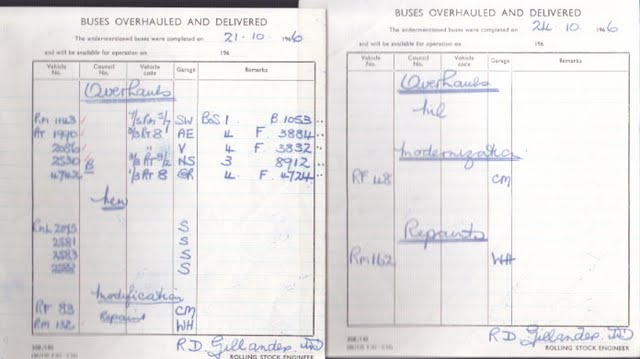 BUSES OVERHAULED AND DELIVERED
The undermentioned buses were completed on 21·10· 1966
and will be available for operation on 196
Vehicle No. Council No. Vehicle code Garage Remarks
Overhauls
RM 1143 SW BoS 1 B.1053
RT 1990 3/3 RT 8 AE 4 F. 3884
2086 " V 4 F. 3832
2530 B NS 3 8912
4742 1/3 RT 8 GR 4 F. 4724
New
RML 2015 S
2581 S
2583 S
2588 S
Modification
RF 83 CM
RM 132 Repaint WH
R.D. Gillander
ROLLING STOCK ENGINEER
BUSES OVERHAULED AND DELIVERED
The undermentioned buses were completed on 24·10· 1966
and will be available for operation on 196
Vehicle No. Council No. Vehicle code Garage Remarks
Overhauls
Nil
Modernization
RF 48 CM
Repaints
RM 162 WH
R.D. Gillander
ROLLING STOCK ENGINEER